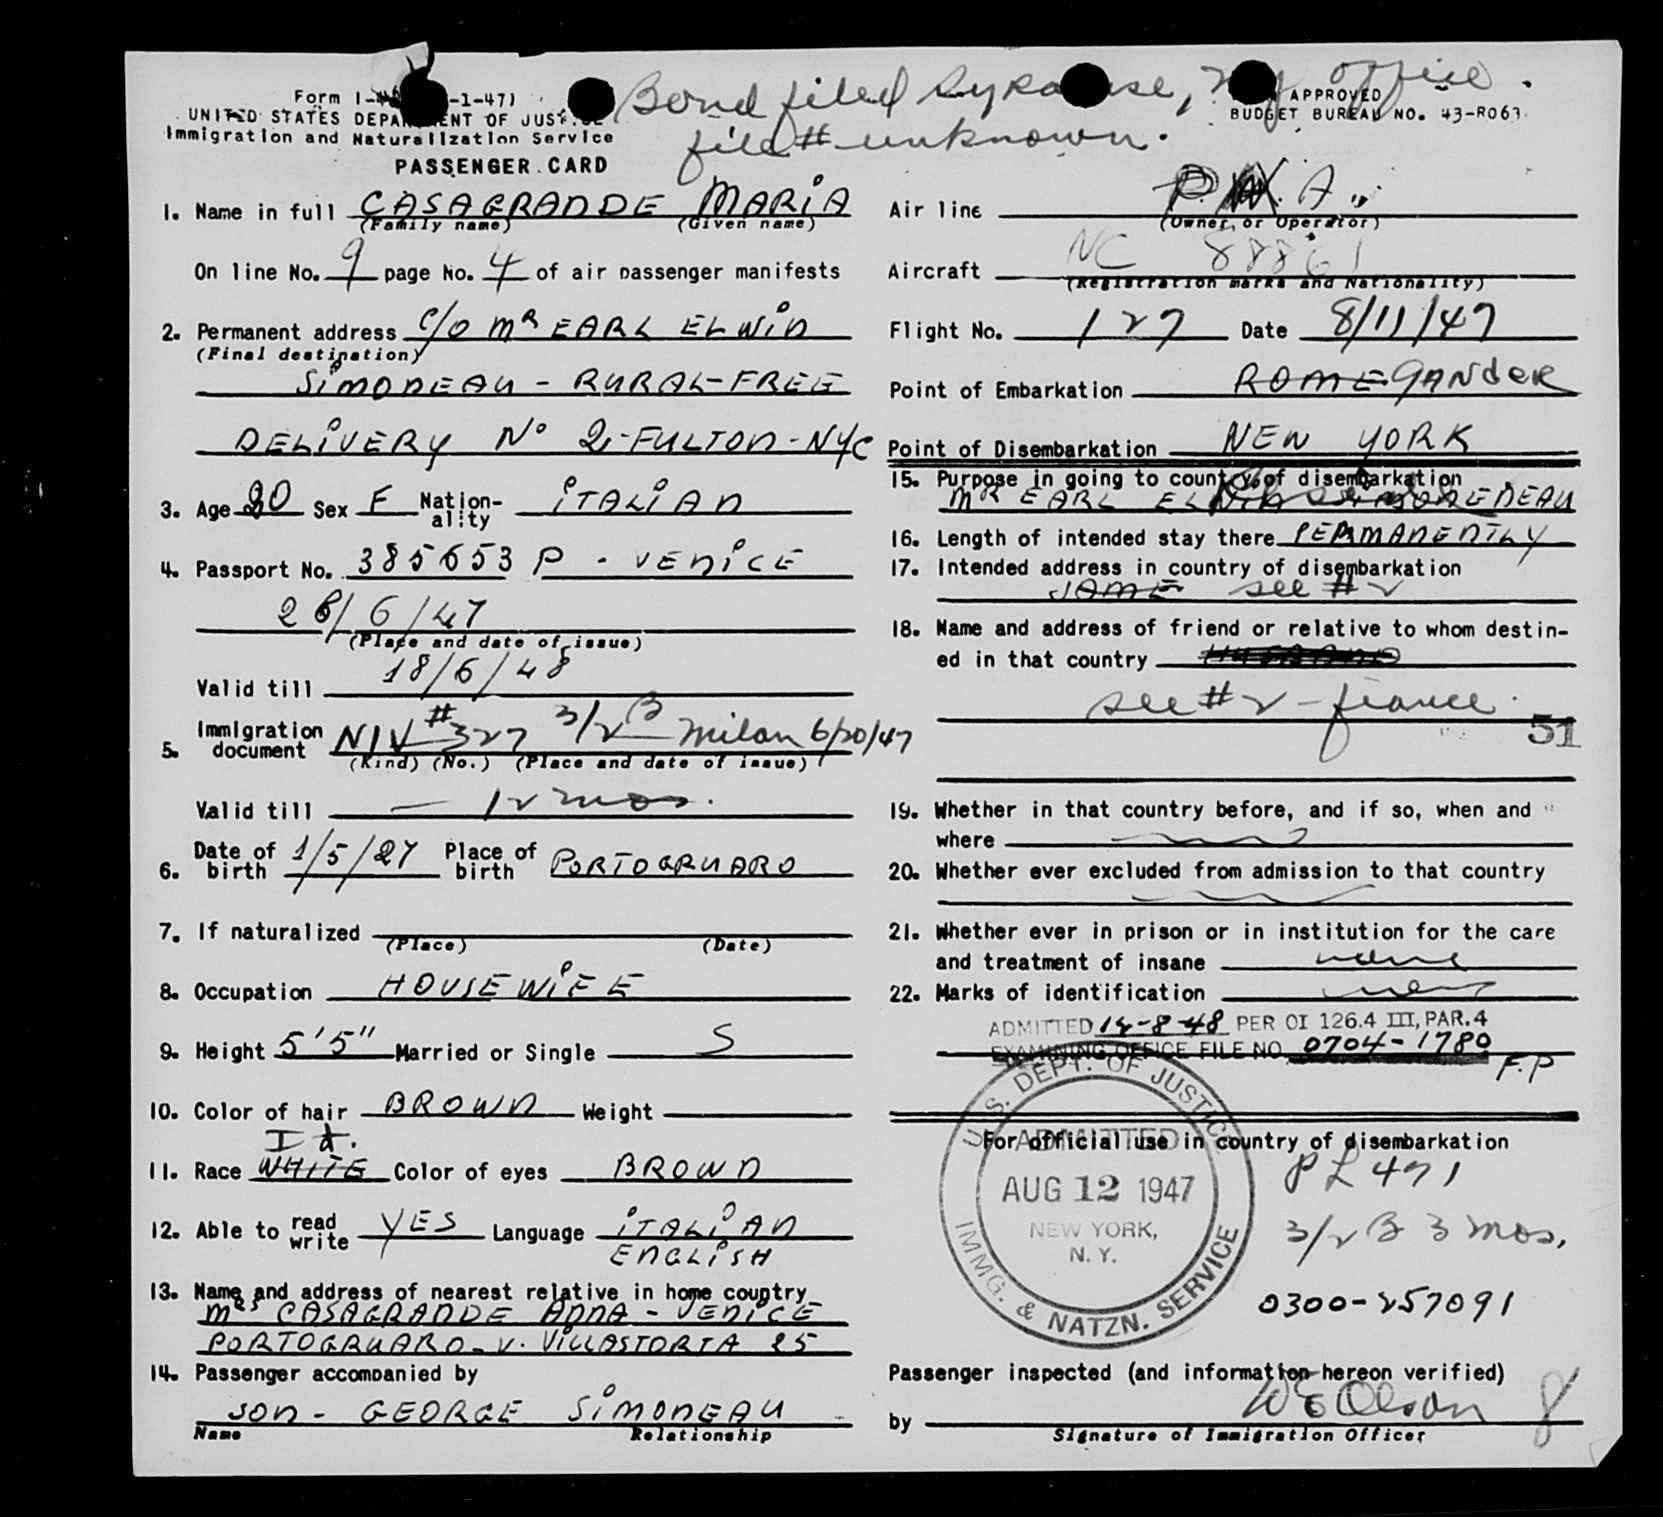 Bond filed Syracuse, NY office.
file # unknown.
Form I- -1-47)
UNITED STATES DEPARTMENT OF JUSTICE
Immigration and Naturalization Service
PASSENGER CARD
APPROVED
BUDGET BUREAU NO. 43-R063.
1. Name in full CASAGRANDE MARIA
(Family name) (Given name)
On line No. 9 page No. 4 of air passenger manifests
2. Permanent address c/o MR EARL ELWIN
(Final destination)
SIMONEAU - RURAL-FREE
DELIVERY N° 2-FULTON-NYC
3. Age 20 Sex F Nation-ality ITALIAN
4. Passport No. 385653 P - VENICE
28/6/47
(Place and date of issue)
Valid till 18/6/48
5. Immigration document NIV # 327 3/2 B Milan 6/20/47
(Kind) (No.) (Place and date of issue)
Valid till — 12 mos.
6. Date of birth 1/5/27 Place of birth PORTOGRUARO
7. If naturalized
(Place) (Date)
8. Occupation HOUSEWIFE
9. Height 5'5" Married or Single S
10. Color of hair BROWN Weight
It.
11. Race WHITE Color of eyes BROWN
12. Able to read write YES Language ITALIAN
ENGLISH
13. Name and address of nearest relative in home country
MRS CASAGRANDE ANNA - VENICE
PORTOGRUARO - V. VILLASTORTA 25
14. Passenger accompanied by
SON - GEORGE SIMONEAU
Name Relationship
Air line P. A. A.
(Owner or Operator)
Aircraft NC 88861
(Registration marks and Nationality)
Flight No. 127 Date 8/11/47
Point of Embarkation ROME GANDER
Point of Disembarkation NEW YORK
15. Purpose in going to country of disembarkation
MR EARL ELWIN
16. Length of intended stay there PERMANENTLY
17. Intended address in country of disembarkation
SAME see # 2
18. Name and address of friend or relative to whom destin-
ed in that country HUSBAND
see # 2 - fiance
51
19. Whether in that country before, and if so, when and
where
20. Whether ever excluded from admission to that country
21. Whether ever in prison or in institution for the care
and treatment of insane none
22. Marks of identification
ADMITTED 12-8-48 PER OI 126.4 III, PAR. 4
EXAMINING OFFICE FILE NO. 0704-1780
F.P
For official use in country of disembarkation
U.S. DEPT. OF JUSTICE
ADMITTED
AUG 12 1947
NEW YORK,
N. Y.
IMMG. & NATZN. SERVICE
PL 471
3/2 B 3 mos.
0300-257091
Passenger inspected (and information hereon verified)
by W E Olson
Signature of Immigration Officer